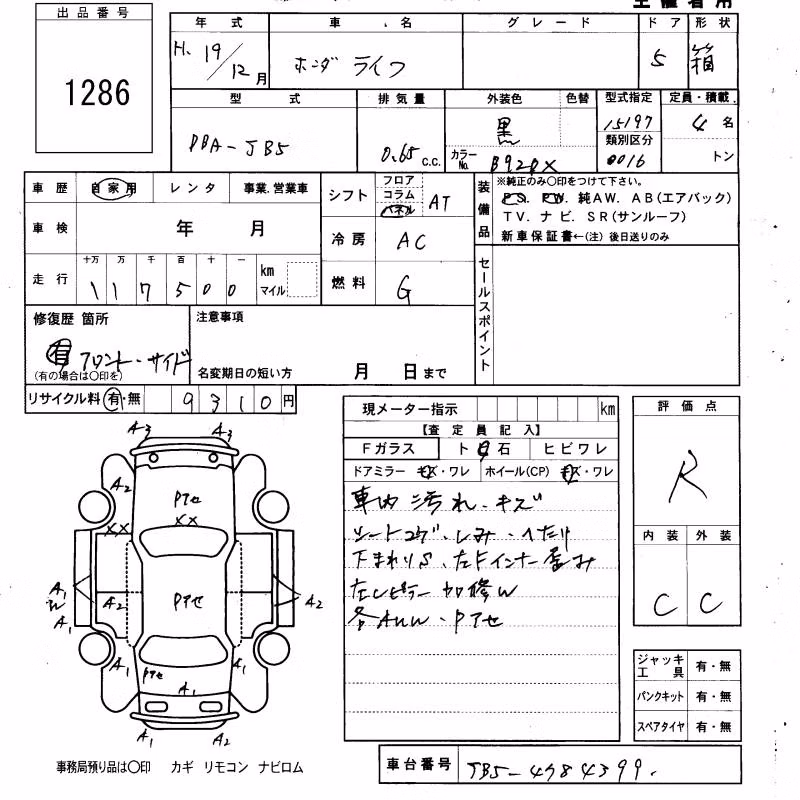 主催者用
出品番号
1286
年式 車名 グレード ドア 形状
H. 19/12月 ホンダ ライフ 5 箱
型式 排気量 外装色 色替 型式指定 定員・積載
DBA-JB5 0.65 c.c. 黒 15197 4 名
カラーNo. B92PX 類別区分 0016 トン
車歴 自家用 レンタ 事業.営業車
車検 年 月
走行 十万 万 千 百 十 一 km マイル
117500
シフト フロア コラム パネル AT
冷房 AC
燃料 G
装備品
※純正のみ〇印をつけて下さい。
PS. PW. 純AW. AB(エアバック)
TV. ナビ. SR(サンルーフ)
新車保証書←(注) 後日送りのみ
セールスポイント
修復歴 箇所
有 フロント・サイド
(有の場合は〇印を)
注意事項
名変期日の短い方 月 日まで
リサイクル料 有・無 9310円
現メーター指示 km
【査定員記入】
Fガラス ト日石 ヒビワレ
ドアミラー キズ・ワレ ホイール(CP) キズ・ワレ
車内 汚れ・キズ
シートコゲ・しみ・へたり
下まわりS、左Fインナー歪み
左Cピラー 加修W
各AUW・Pアセ
評価点
R
内装 外装
C C
ジャッキ工具 有・無
パンクキット 有・無
スペアタイヤ 有・無
A3 A3
A2 Pアセ
XX XX
A1 W A1 A2 Pアセ A2
A1 Pアセ A1 A1
A1 A2
事務局預り品は〇印 カギ リモコン ナビロム
車台番号 JB5-4784399.